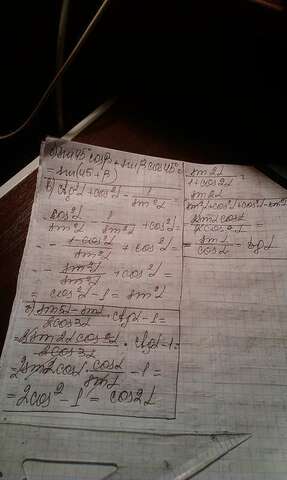 sin45° cosβ + sinβ cos45° =
= sin(45+β)
б) ctg²α + cos²α - 1/sin²α =
cos²α/sin²α - 1/sin²α + cos²α =
= - (1-cos²α)/sin²α + cos²α =
= - sin²α/sin²α + cos²α =
= cos²α - 1 = sin²α
(sin5α - sinα)/2cos3α · ctgα - 1 =
= 2sin2α cos3α/2cos3α · ctgα - 1 =
= 2sinα cosα · cosα/sinα - 1 =
= 2cos² - 1 = cos2α
sin2α/1+cos2α =
sin2α/sin²α+cos²α+cos²α-sin²α =
2sinα cosα/2cos²α =
= sinα/cosα = tgα